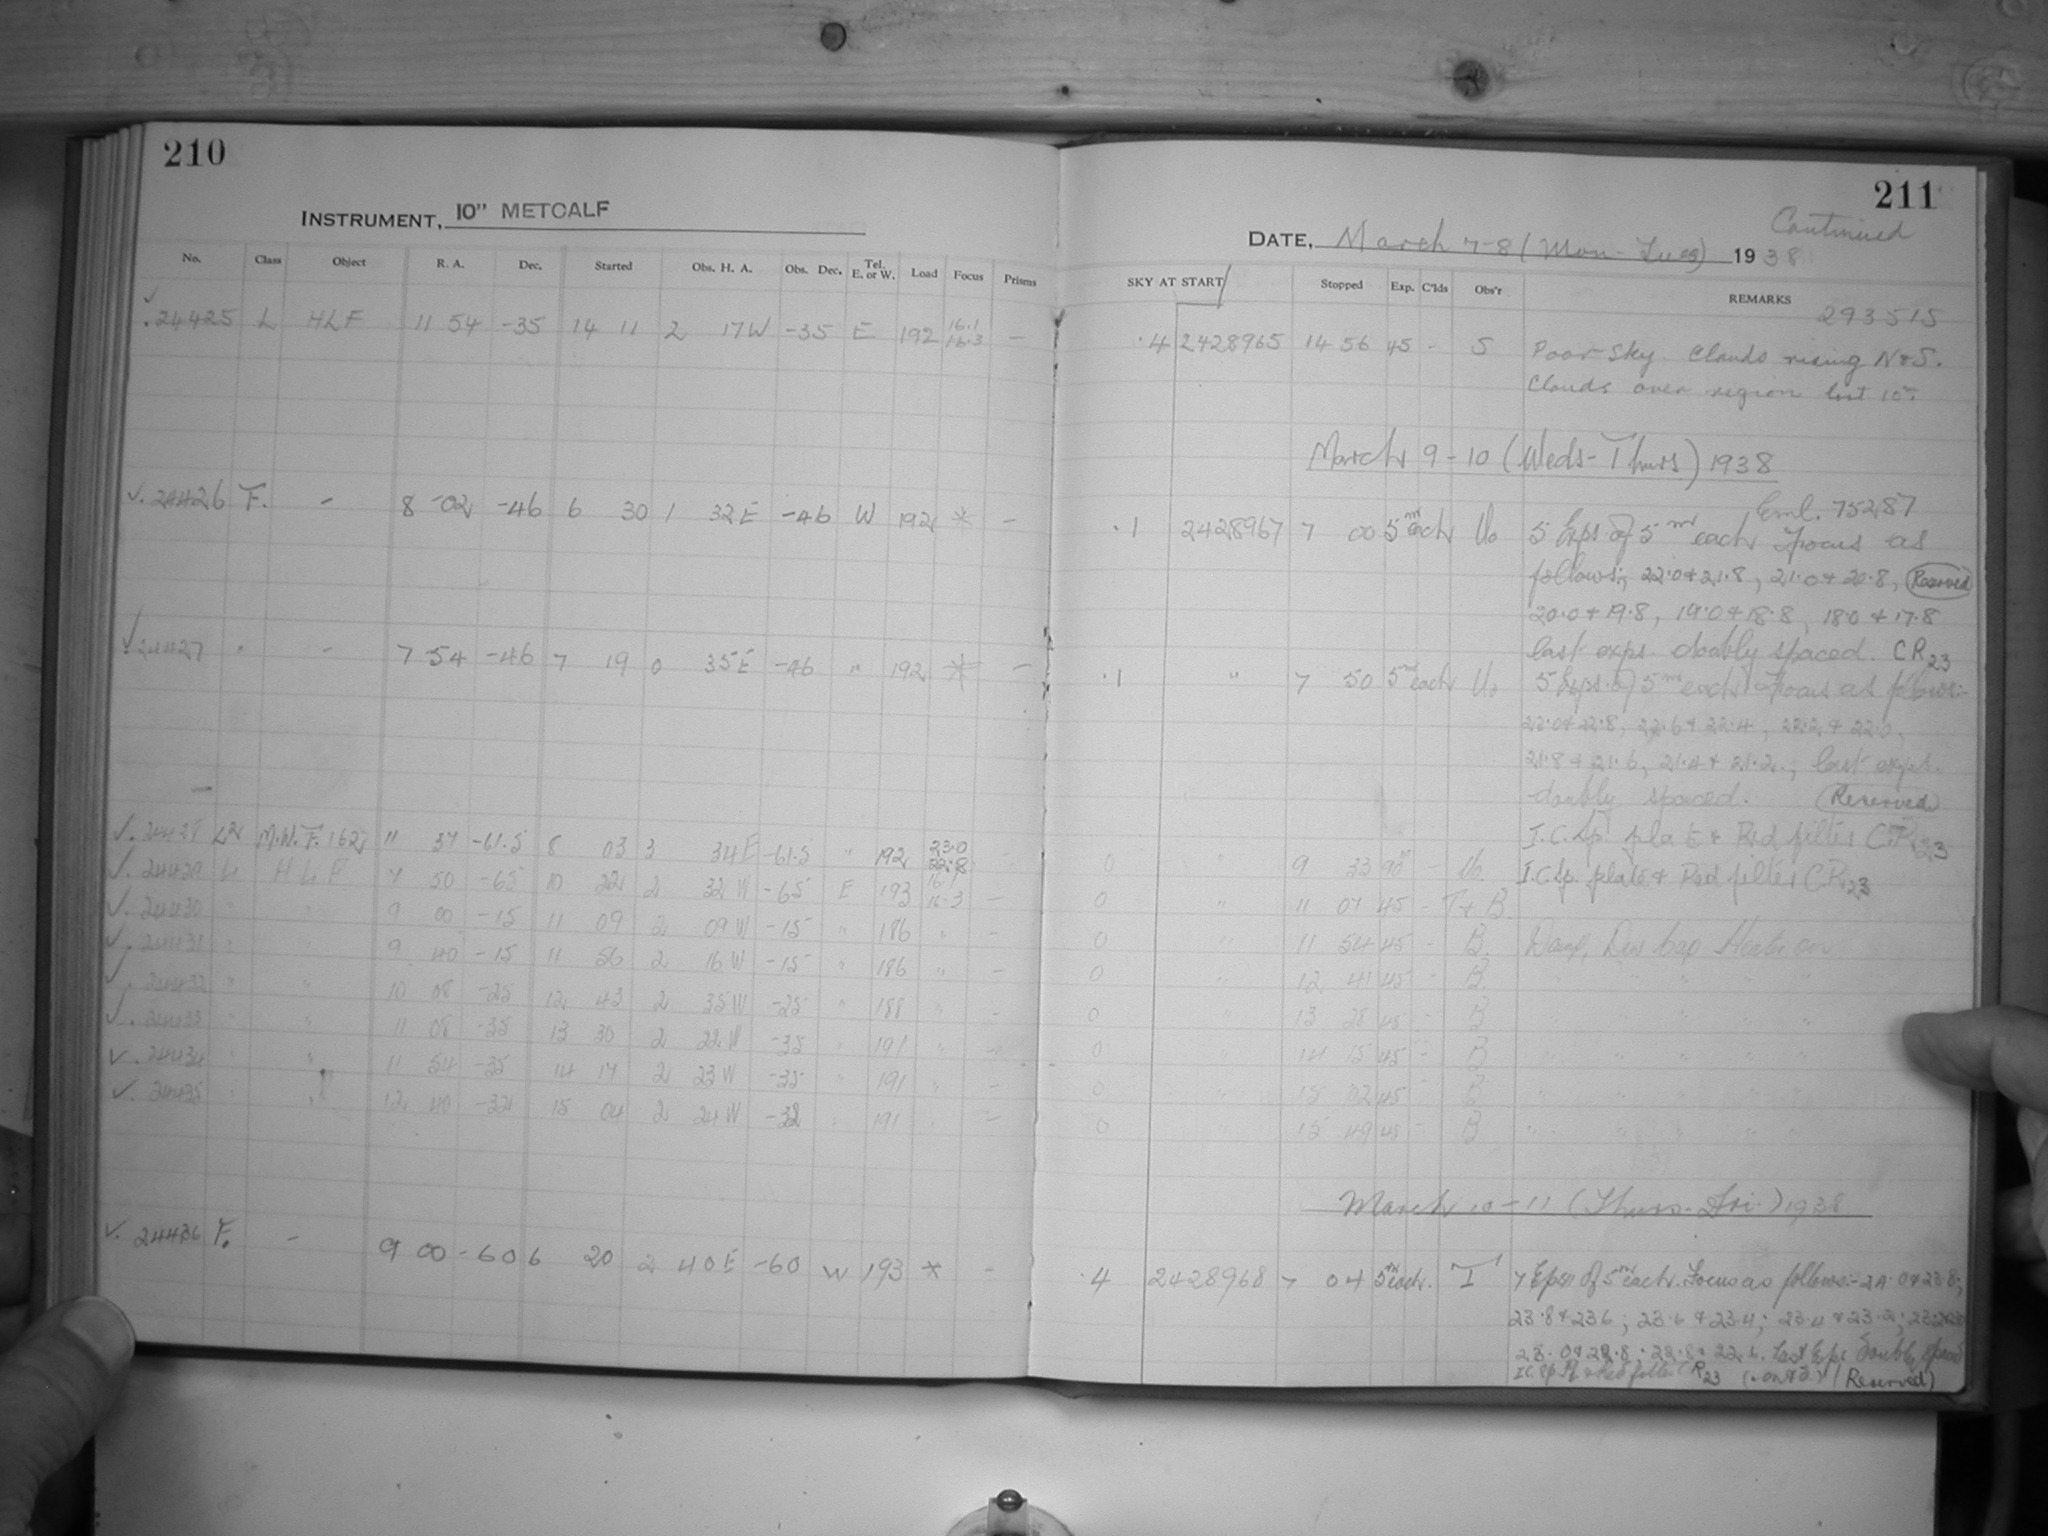 210
INSTRUMENT, 10" METCALF
No. Class Object R. A. Dec. Started Obs. H. A. Obs. Dec. Tel. E. or W. Load Focus Prisms
✓ 24425 L HLF 11 54 -35 14 11 2 17W -35 E 192 16.1 16.3 —
✓. 24426 F. - 8 02 -46 6 30 1 32E -46 W 192 * -
✓ 24427 " - 7 54 -46 7 19 0 35E -46 " 192 * -
✓. 24428 L2 M.W.F. 162 11 37 -61.5 8 03 3 34E -61.5 " 192 23.0 22.8
✓. 24429 L H L F 7 50 -65 10 22 2 32W -65 E 193 16.1 16.3 -
✓. 24430 " " 9 00 -15 11 09 2 09W -15 " 186 " -
✓. 24431 " " 9 40 -15 11 56 2 16W -15 " 186 " -
✓. 24432 " " 10 08 -25 12 43 2 35W -25 " 188 " -
✓. 24433 " " 11 08 -35 13 30 2 22W -35 " 191 " -
✓. 24434 " " 11 54 -35 14 17 2 23W -35 " 191 " -
✓. 24435 " " 12 40 -32 15 04 2 24W -32 " 191 " -
✓. 24436 F. - 9 00 -60 6 20 2 40E -60 W 193 * -
211
Continued
DATE, March 7-8 (Mon-Tues) 1938
SKY AT START Stopped Exp. C'lds Obs'r REMARKS
293515
.4 2428965 14 56 45 - S Poor sky Clouds rising N&S.
Clouds over region last 10m
March 9-10 (Weds-Thurs) 1938
Eml. 75287
.1 2428967 7 00 5m each Uo 5 Exps of 5m each Focus as
follows:- 22.0&21.8, 21.0&20.8, (Reserved)
20.0&19.8, 19.0&18.8, 18.0&17.8
last exps. doubly spaced. CR23
.1 " 7 50 5m each Uo 5 Exps. of 5m each Focus as follows:-
22.8, 22.6&22.4, 22.2&22.0,
21.8&21.6, 21.4&21.2., last exps.
doubly spaced. (Reserved)
I.C.Sp. plate & Red filter C.R.23
0 " 9 33 90m - Uo. I.C.Sp. plate & Red filter C.R.23
0 " 11 07 45 - T+B.
0 " 11 54 45 - B. Damp, Dew Cap Heater on
0 " 12 41 45 - B. " " " " "
0 " 13 28 45 - B " " " " "
0 " 14 15 45 - B " " " " "
0 " 15 02 45 - B " " " " "
0 " 15 49 45 - B " " " " "
March 10-11 (Thurs-Fri.) 1938
.4 2428968 7 04 5m each. T 7 Exps of 5m each. Focus as follows:- 24.0&23.8;
23.8&23.6; 23.6&23.4; 23.4&23.2;
23.0&22.8; 22.8&22.6. Last Exps Doubly spaced
I.C. Sp. Pl. & Red filter CR23 (Reserved)